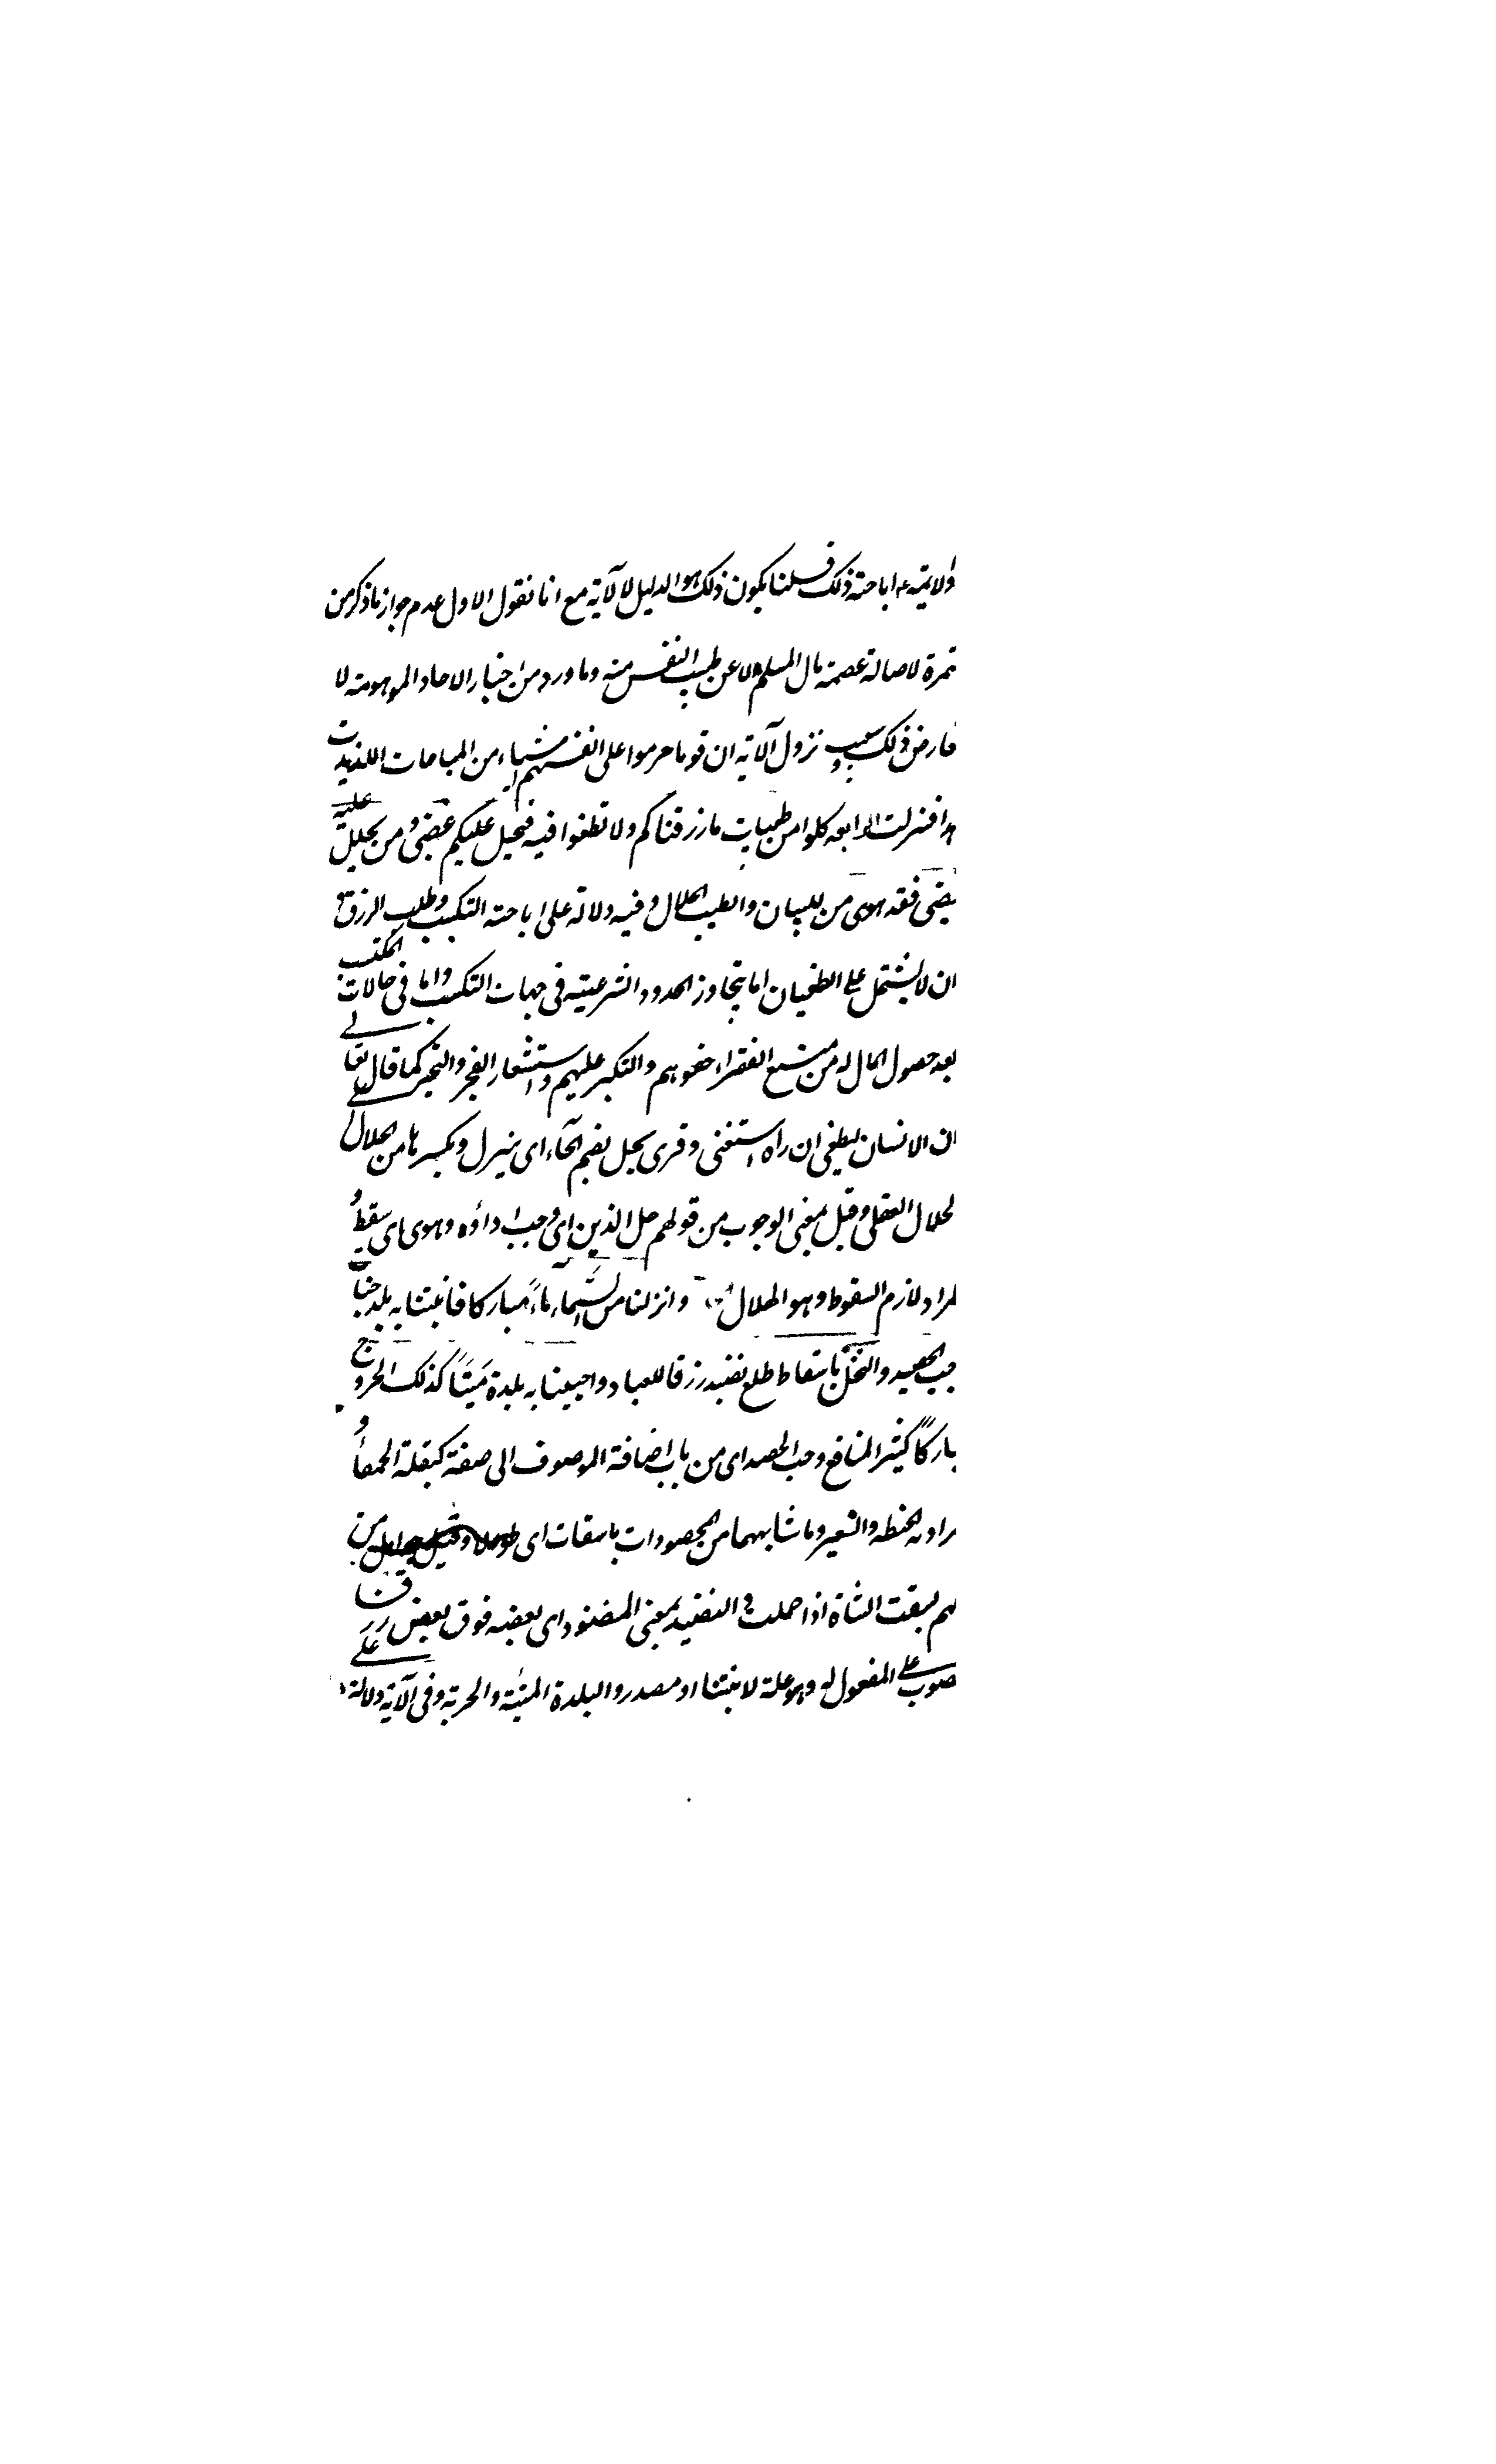 ولايته ع اباحة ذلك قلنا يكون ذلك هو الدليل لا لآية مع انا نقول الاول عدم جواز ما ذكر من
ثمرة لاصالة عصمة مال المسلم الا عن طيب النفس منه وما ورد من اخبار الاحاد الموهومة لا
عارض ذلك سبب نزول الآية ان قوما حرموا على انفسهم اشياء من المباحات اللذيذات
فنزلت الرابعه كلوا من طيبات ما رزقناكم ولا تطغوا فيه فيحل عليكم غضبي ومن يحلل عليه
غضبي فقد هوى من للبيان والطيب الحلال وفيه دلالة على اباحة التكسب وطلب الرزق
ان لا يشتمل على الطغيان اما بتجاوز الحدود الشرعية في جهات التكسب واما في حالات المكتسب
بعد حصول المال له من منع الفقراء حقوقهم والتكبر عليهم واستشعار الفخر والتجبر كما قال تعالى
ان الانسان ليطغى ان راه استغنى وقرئ يحل بضم الحاء اى ينزل وبكسرها من الحلال
لحلال العقلي وقيل بمعنى الوجوب من قولهم حل الدين اى وجب اداؤه وهوى اى سقط و
لمراد لازم السقوط وهو الهلاك وانزلنا من السماء ماء مباركا فانبتنا به جنات
حب الحصيد والنخل باسقات طلع نضيد رزقا للعباد واحيينا به بلدة ميتا كذلك الخروج
باركا كثير المنافع وحب الحصد اى من باب اضافة الموصوف الى صفة كبقلة الحمقاء و
راد به الحنطه والشعير وما شابههما من المحصودات باسقات اى طوالا وقيل حوامل من
لهم بسقت الشاة اذا حملت و النضيد بمعنى المنضود اى بعضه فوق بعض رزقنا
صوب على المفعول له وهو علة لانبتنا او مصدر والبلدة الميتة والخربة وفي الآية دلالة على